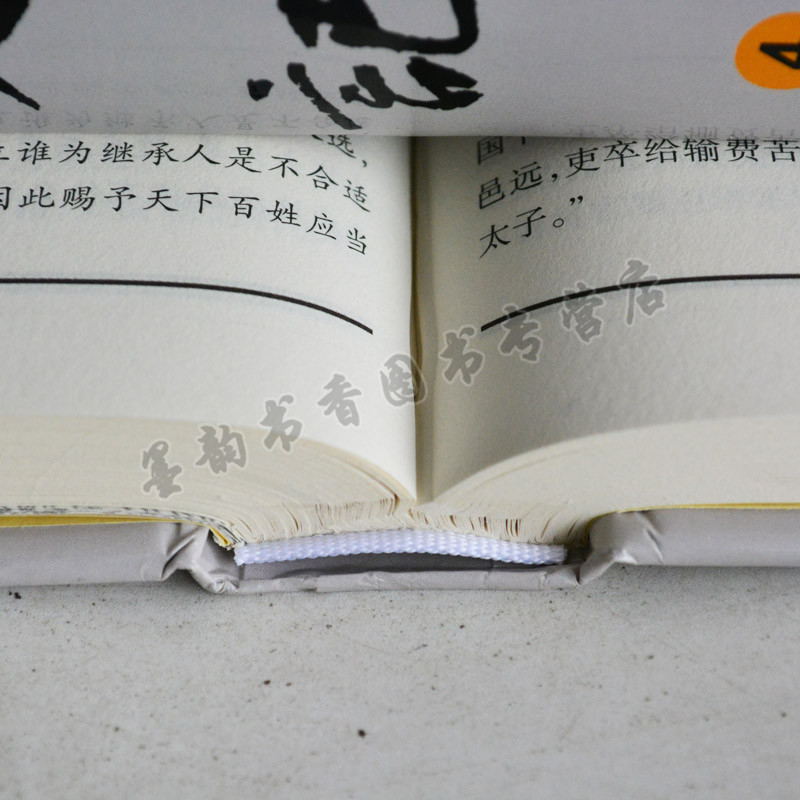 4
选，
谁为继承人是不合适
因此赐予天下百姓应当
国
邑远，吏卒给输费苦
太子。”
墨韵书香图书专营店